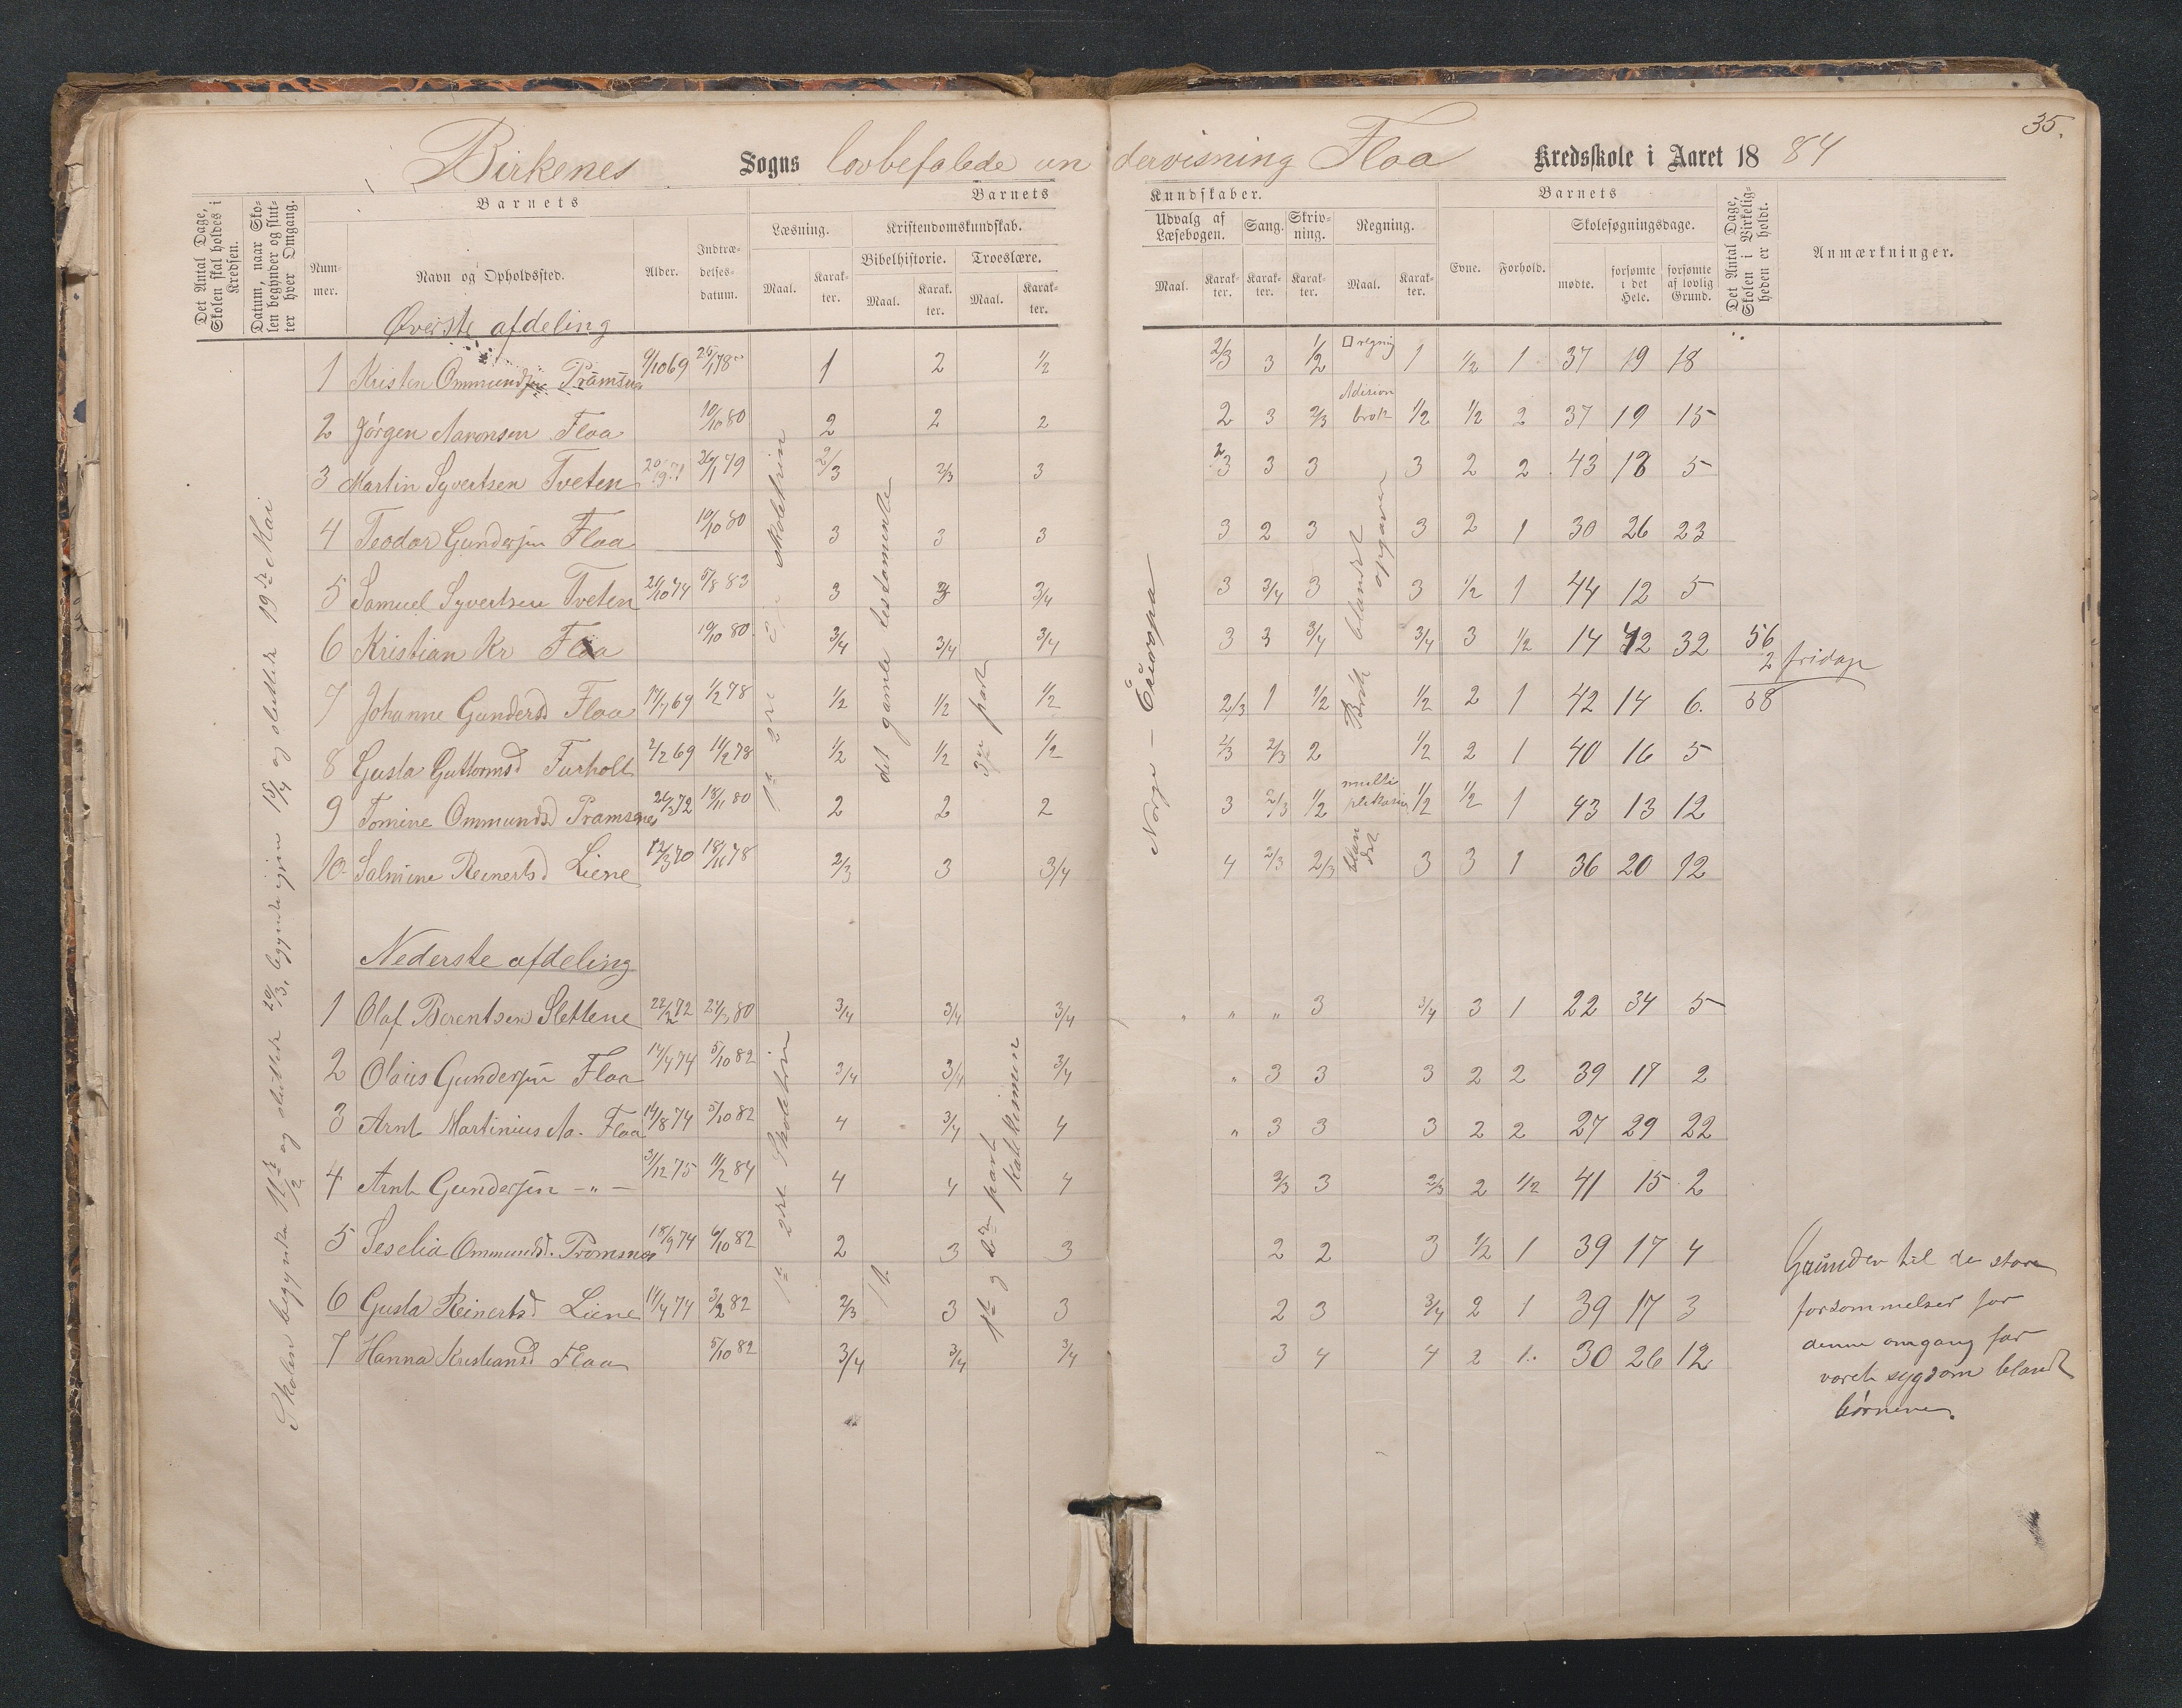 35.
Birkenes Sogns lovbefalede undervisning Floa Kredsskole i Aaret 1884
Det Antal Dage, Skolen skal holdes i Kredsen.
Datum, naar Skolen begynder og slutter hver Omgang.
Barnets
Nummer.
Navn og Opholdssted.
Alder.
Indtrædelsesdatum.
Barnets Kundskaber.
Læsning.
Maal. Karakter.
Kristendomskundskab.
Bibelhistorie. Troeslære.
Maal. Karakter. Maal. Karakter.
Udvalg af Læsebogen. Sang. Skrivning. Regning.
Maal. Karakter. Karakter. Karakter. Maal. Karakter.
Barnets
Evne. Forhold. Skolesøgningsdage.
mødte. forsømte i det Hele. forsømte af lovlig Grund.
Det Antal Dage, Skolen i Virkeligheden er holdt.
Anmærkninger.
Øverste afdeling
1 Kristen Ommundsen Pramsnes 9/10 69 1 2 1/2 2/3 3 1/2 regnig 1 1/2 1 37 19 18
2 Jørgen Aaronsen Floa 10/10 80 2 2 2 2 3 2/3 Adision brøk 1/2 1/2 2 37 19 15
3 Martin Syvertsen Tveten 26/1 79 2/3 2/3 3 2/3 3 3 3 2 2 43 18 5
4 Teodor Gundersen Floa 10/10 80 3 3 3 3 2 3 3 2 1 30 26 23
5 Samuel Syvertsen Tveten 21/10 74 5/8 83 3 3 3/4 3 3/4 3 3 1/2 1 44 12 5
6 Kristian Kr Floa 10/10 80 3/4 3/4 3/4 3 3 3/4 3/4 3 1/2 14 42 32 56
2 fridage
7 Johanne Gundersd Floa 17/7 69 1/2 78 1/2 1/2 1/2 2/3 1 1/2 1/2 2 1 42 14 6. 58
8 Gusta Guttormsd Furholt 2/2 69 11/2 78 1/2 1/2 1/2 2/3 2/3 2 1/2 2 1 40 16 5
9 Tomine Ommundsd Pramsnes 26/2 72 18/11 80 2 2 2 3 2/3 1/2 multiplikasion 1/2 1/2 1 43 13 12
10 Salmine Reinertsd Liene 12/3 70 18/11 78 2/3 3 3/4 4 2/3 2/3 blandet 3 3 1 36 20 12
Skolen begynte 11te/2 og sluttede 29/3, begynte igjen 15/4 og sluttede 19de Mai
det gamle testamente
3die part
Norge – Europa
Brøk blandet opgaver
Nederste afdeling
1 Olaf Berentsen Slettene 22/2 72 80 3/4 3/4 3/4 " " " 3 3/4 3 1 22 34 5
2 Olaus Gundersen Floa 14/4 74 5/10 82 3/4 3/4 3/4 " 3 3 3 2 2 39 17 2
3 Arnt Martinius Aa. Floa 14/8 74 5/10 82 4 3/4 4 " 3 3 3 2 2 27 29 22
4 Arnt Gundersen – " – 31/12 75 11/2 84 4 4 4 2/3 3 2/3 2 1/2 41 15 2
5 Seselia Ommundsd. Promsnes 18/9 74 6/10 82 2 3 3 2 2 3 1/2 1 39 17 4
6 Gusta Reinertsd Liene 14/4 74 3/2 82 2/3 3 3 2 3 3/4 2 1 39 17 3
7 Hanna Kristiansd Floa 5/10 82 3/4 3/4 3/4 3 4 4 2 1. 30 26 12
1te 2det Skoletrin
1te og 2den part katekismen
Grunden til de store
forsømmelser for
denne omgang har
været sygdom blandt
børnene.